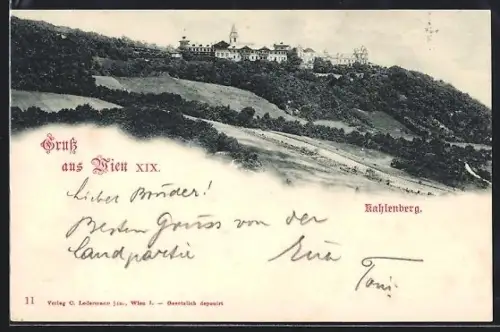 Gruß
aus Wien XIX.
Kahlenberg.
Lieber Bruder!
Besten Gruss von der
Landpartie Euer
Toni
11 Verlag C. Ledermann jun., Wien I. — Gesetzlich deponirt